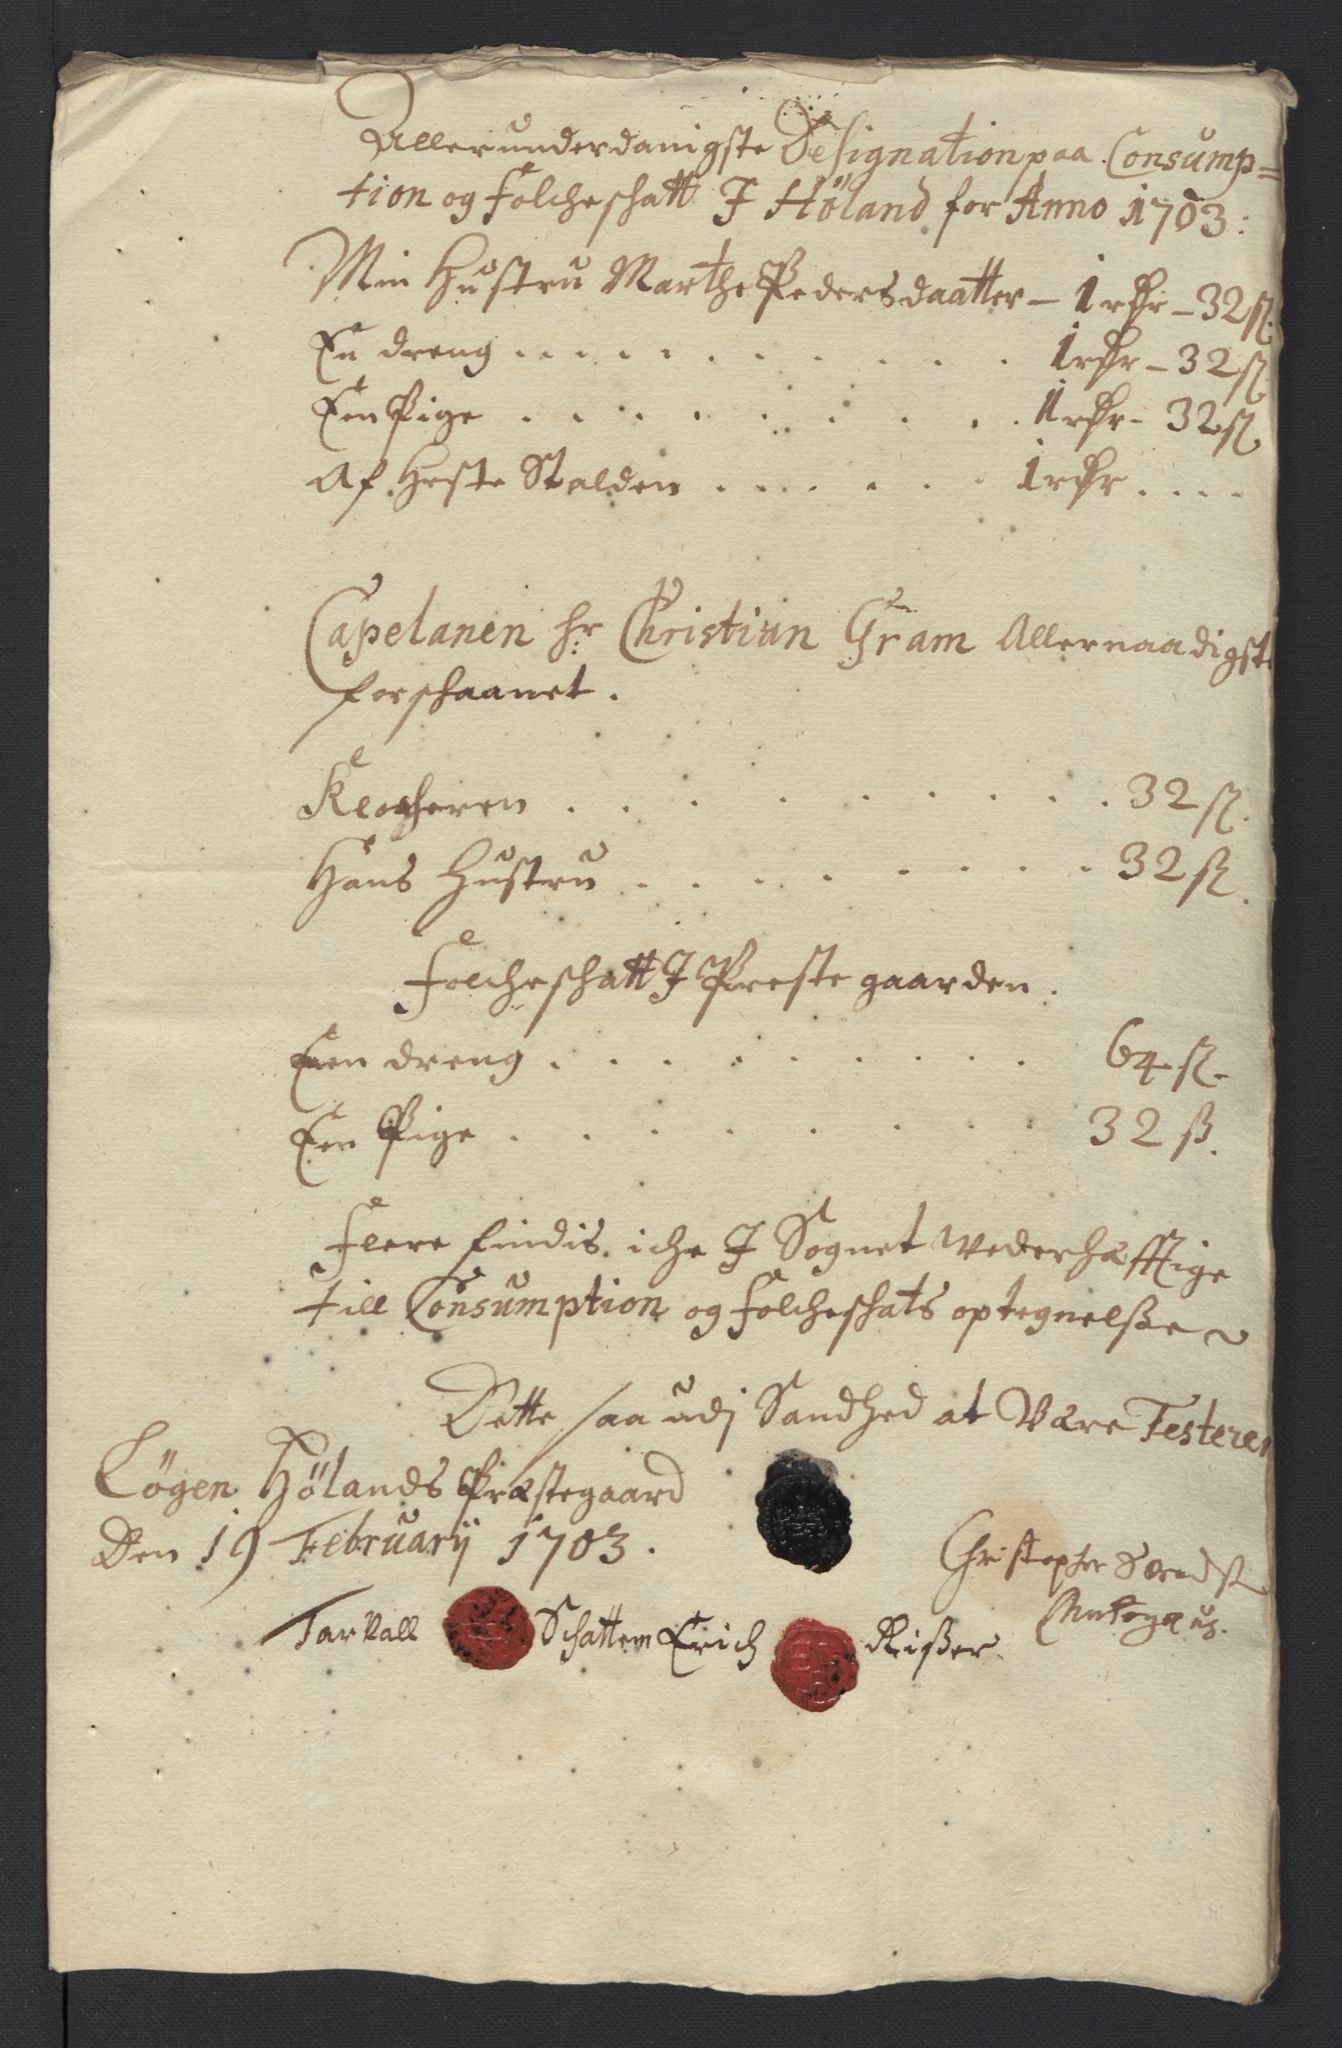 Allerunderdanigste Designation paa Consump=
tion og Folcheschatt J Höland for Anno 1703:
Min Hustru Marthe Pedersdaatter – 1 rdr – 32 ſz.
En dreng . . . . . . . . . 1 rdr – 32 ſz
Een Pige . . . . . . . . . 1 rdr – 32 ſz
Af Heste Stalden . . . . . . 1 rdr . . . .
Capelanen hr Christian Gram Allernaadigst
forschaanet.
Klocheren . . . . . . . . . 32 ſz.
Hans Hustru . . . . . . . . 32 ſz.
Folcheschatt J Prestegaarden.
Een dreng . . . . . . . . . 64 ſz.
Een Pige . . . . . . . . . 32 ß.
Flere findis iche J Sognet Wederhæfftige
till Consumption og Folcheschats optegnelße
Dette saa udj Sandhed at Være Testerer
Lögen Hölands Præstegaard
Den 19 Februarij 1703.
Christopher
Tarkall Schattem Erich Rißer.